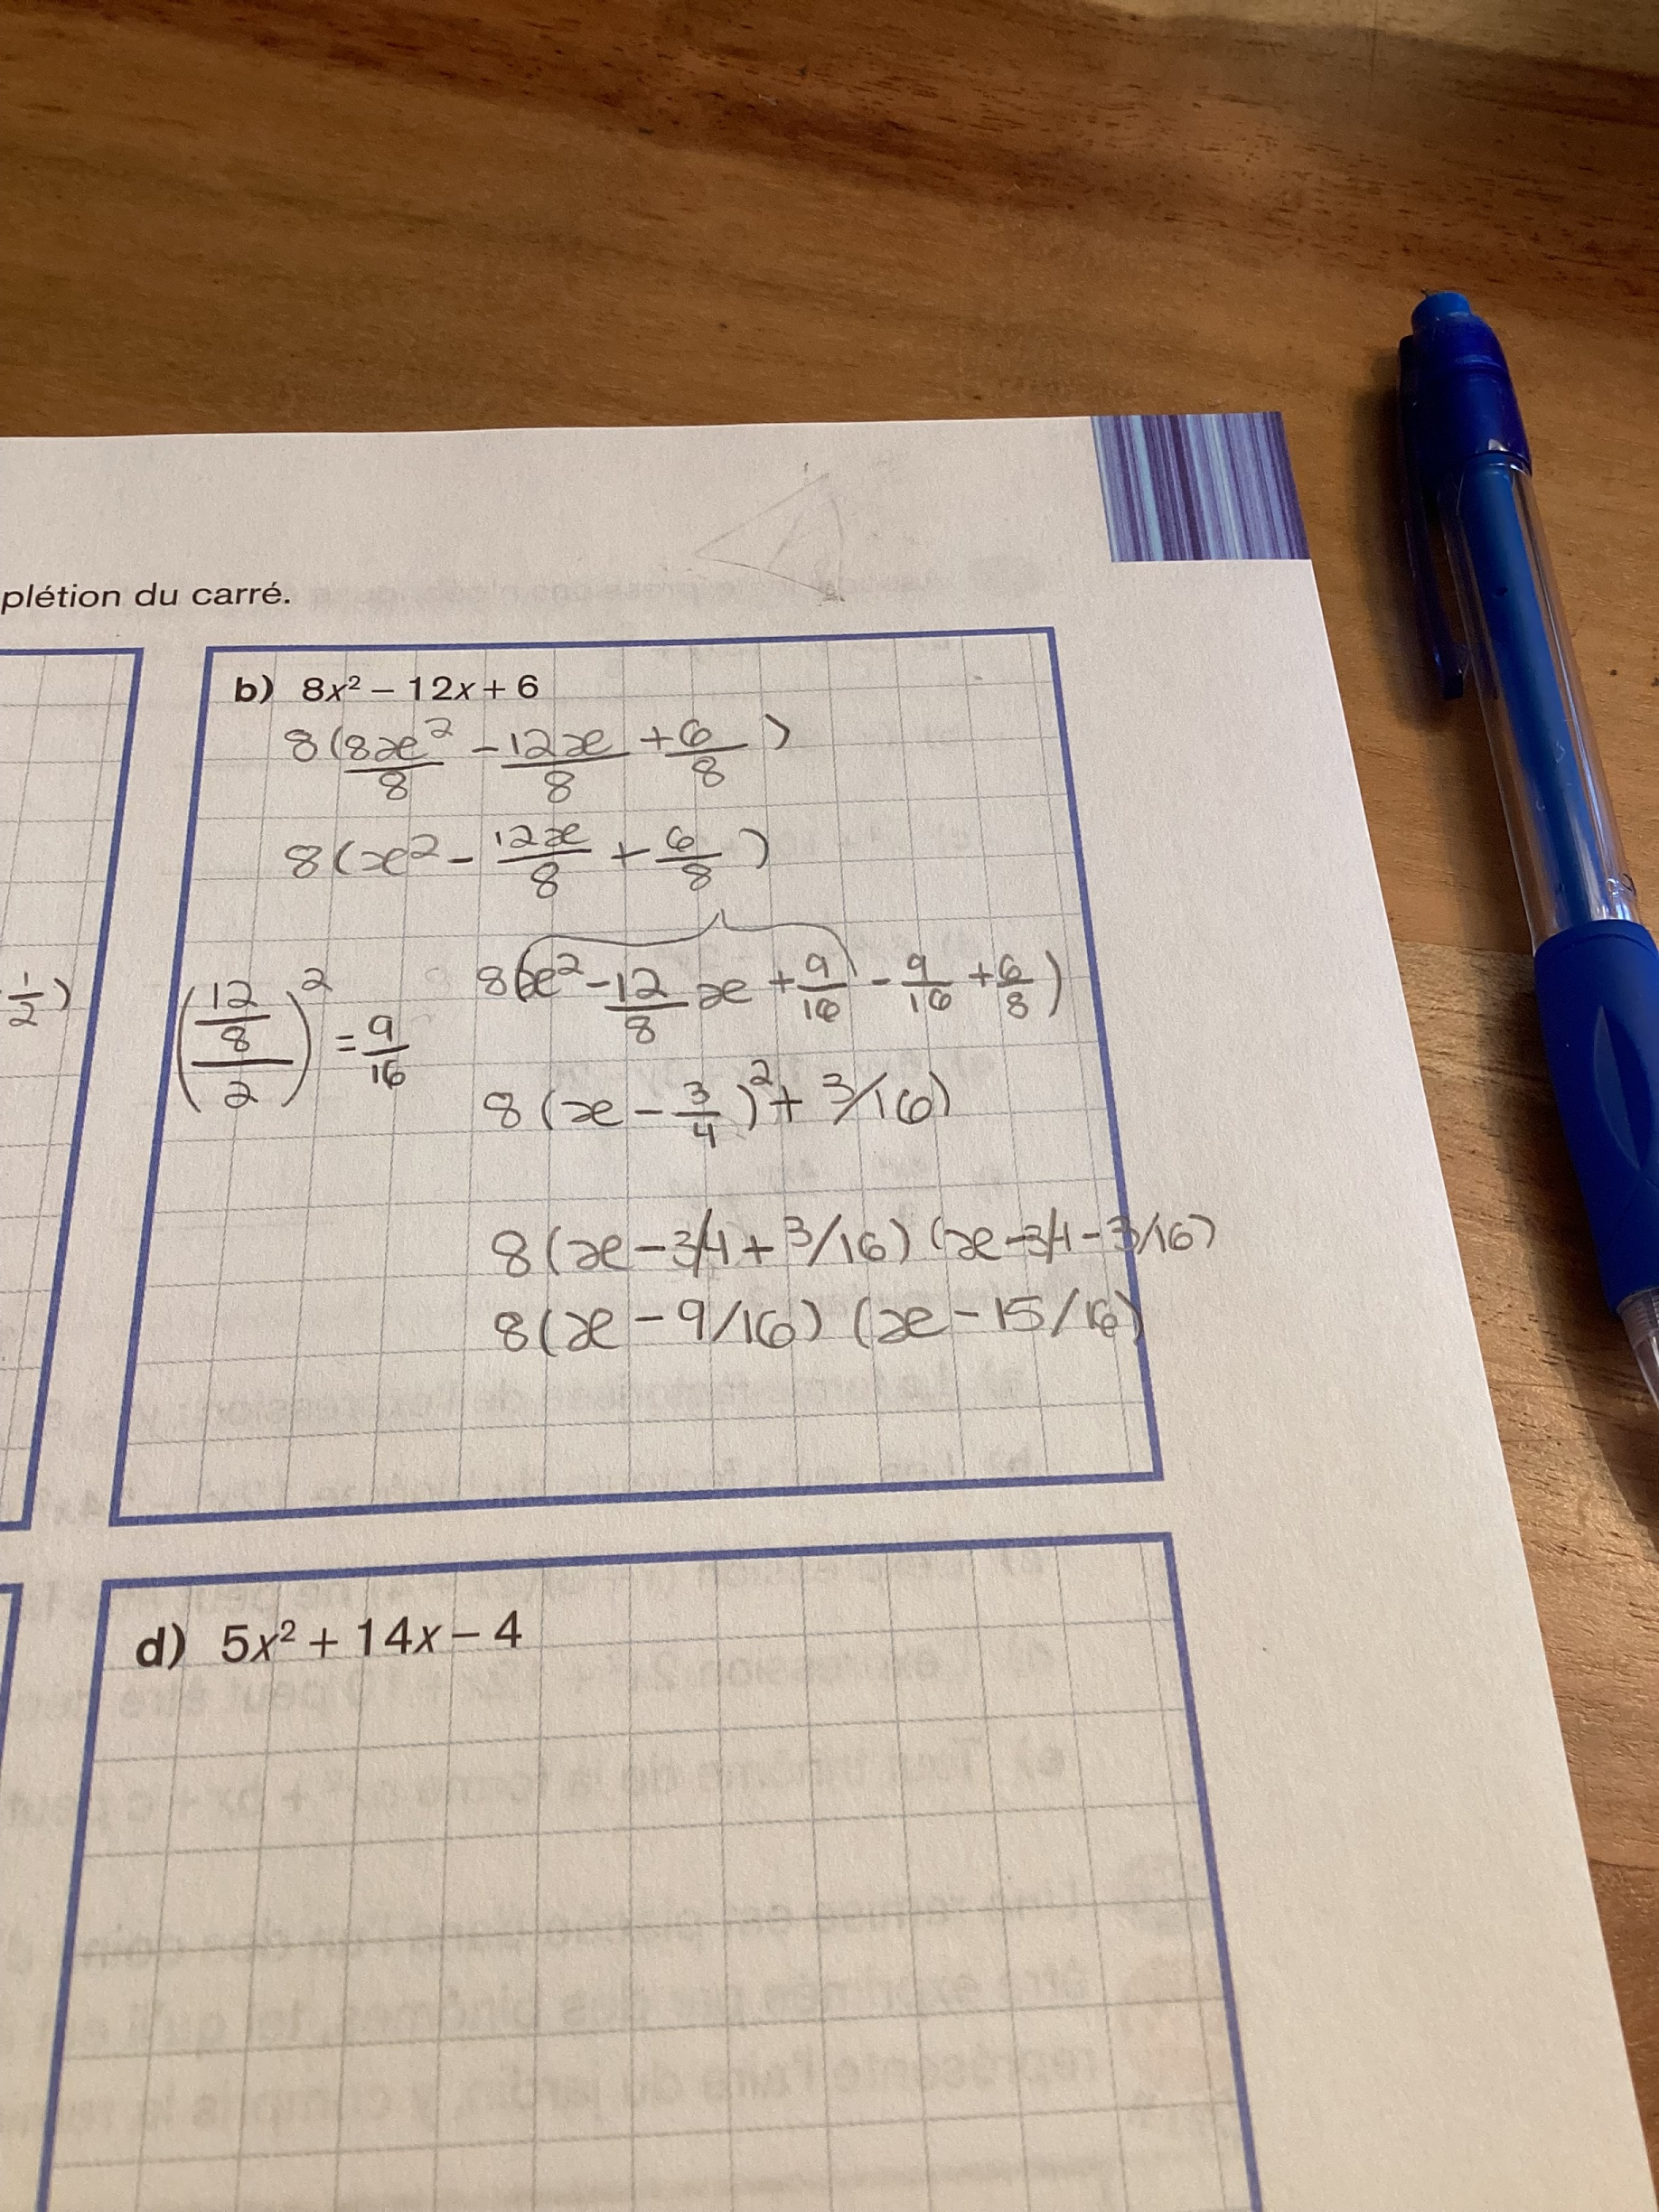 plétion du carré.
b) 8x² – 12x + 6
8(8x²/8 - 12x/8 + 6/8)
8(x² - 12x/8 + 6/8)
1/2)
((12/8)/2)² = 9/16
8(x² - 12/8 x + 9/16) - 9/16 + 6/8)
8(x - 3/4)² + 3/16)
8(x - 3/4 + 3/16)(x - 3/4 - 3/16)
8(x - 9/16)(x - 15/16)
d) 5x² + 14x – 4